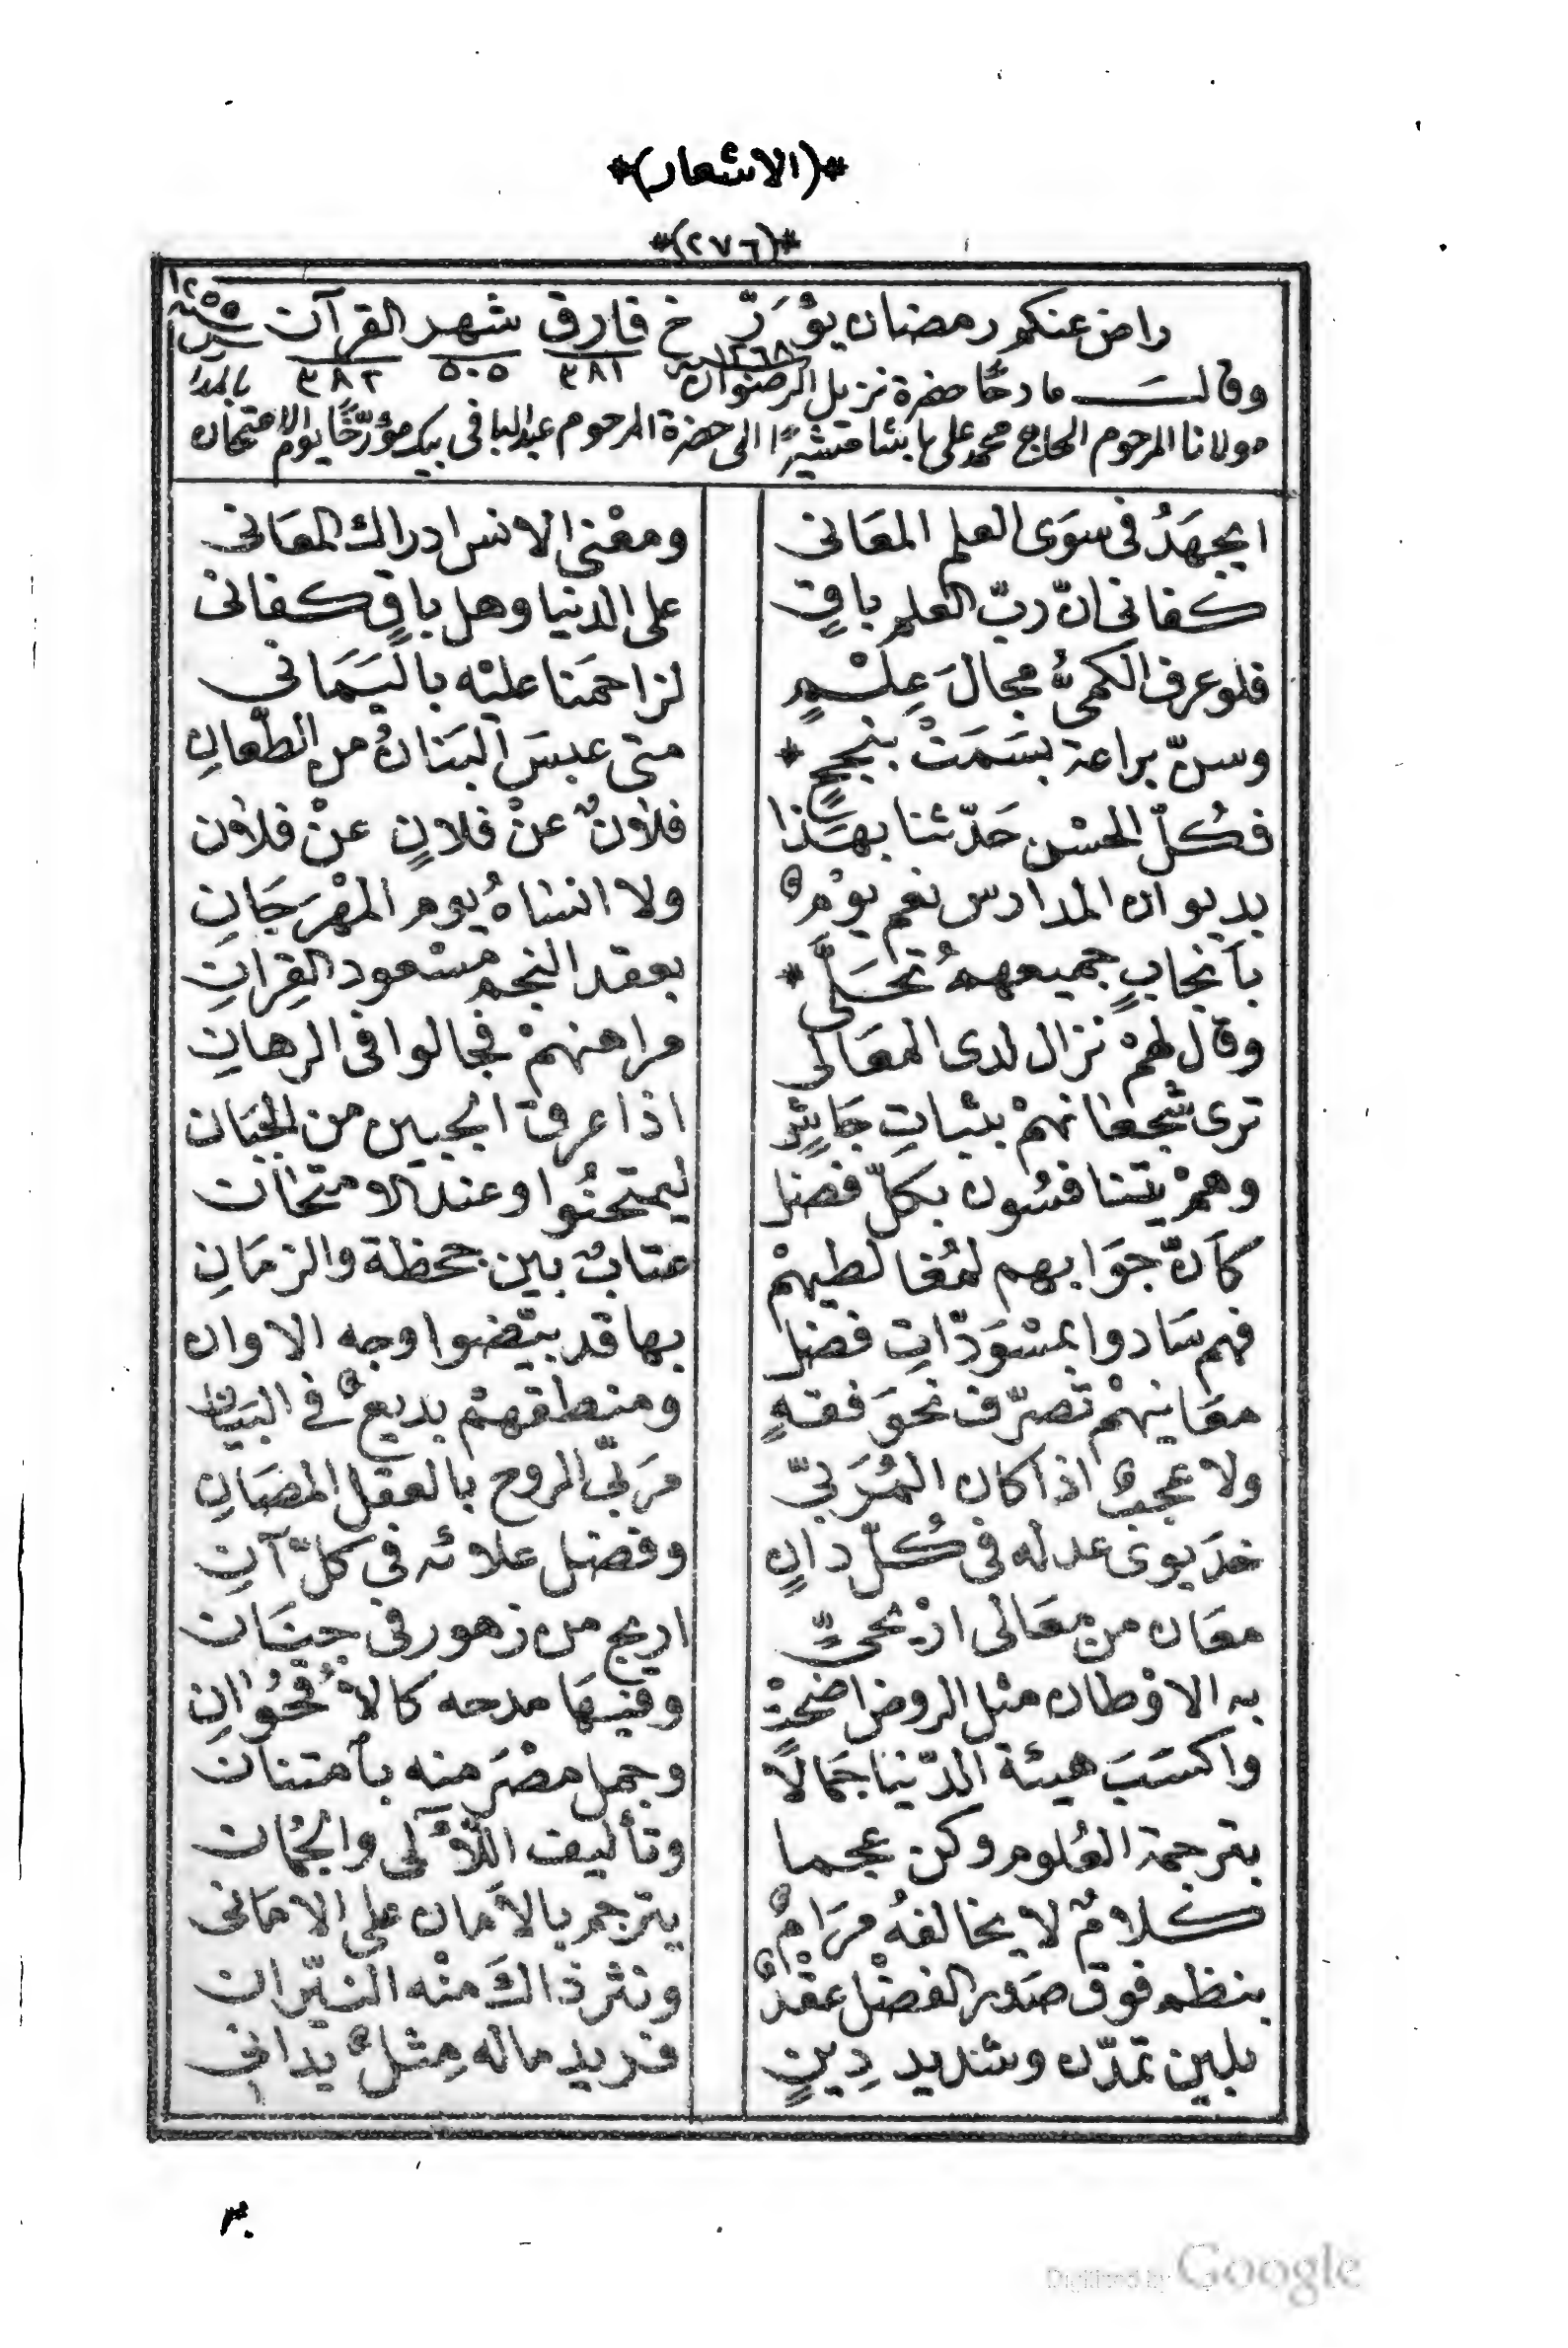 *(الاشعار)*
*(٢٧٦)*
راض عنكم رمضان يؤَرّخ فارق شهر القرآن سنة ١٢٥٥
١٢٦٨ ٣٨١ ٥٠٥ ٣٨٢
وقال مادحًا حضرة نزيل الرضوان
مولانا المرحوم الحاج محمد على باشا مشيرًا الى حضرة المرحوم عبد الباقى بيك مؤرّخًا يوم الامتحان بالمدا
ايجهَدُ فى سوَى العلم المعَانى ومعْنى الانس ادراك المعَانى
كفانى انّ ربّ العلم باقٍ على الدنيا وهل باقٍ كفانى
فلو عرف الكمىُّ مجالَ عِلْمٍ لزاحمَنا عليْه باليَمَانى
وسنّ براعة بسَمَتْ بنجحٍ * متى عبسَ البَنانُ من الطّعانِ
فكُلّ الحسْن حَدّثنا بهَذا فلانٌ عنْ فلانٍ عنْ فلان
بديوان المدارس نعم يوْمٌ ولا انسَاهُ يوم المهْرَجَانِ
بأنجابٍ جميعهمُ تحَلَّى * بعقد النجم مسْعود القِرانِ
وقال لهمْ نزال لدى المعَالى مراهنهمْ فجالوا فى الرهانِ
ترى شجعانهمْ بثباتِ جَائزٍ اذا عرق الجبين من الجبَان
وهمْ يتنافسُون بكلّ فضل ليمتحنُوا وعند الامتحَان
كأنّ جوَابهم لمُغالطيهمْ عتابٌ بين جحظة والزمَانِ
فهم سَادوا بمسْوَدّاتِ فضل بها قد بيّضوا وجه الاوان
معَانيهمْ تصرّف نحوَ فقهٍ ومنطقهمْ بديعٌ فى البيَان
ولا عجبٌ اذا كان المُرَبّى مرَبّى الروح بالعقل المصَانِ
خديوىٌ عدله فى كُلّ دانٍ وفضل علائه فى كلّ آنِ
معَان من معَالى ارْيحىٍّ اريج من زهور فى جنَان
به الاوْطان مثل الروض اضحتْ وفيهَا مدحه كالأُقحُوَانِ
واكسَبَ هيئة الدّنيا جمَالًا وجمل مصْرَ منه بامتنان
بترجمة العُلوم وكن عجما وتأليف اللّآلى والجُمان
كلامٌ لا يخالفهُ مرَامٌ يترجم بالأمان على الامَانى
بنظم فوق صَدر الفضْل عقْدٌ ونثر ذاكَ منْه النيّران
بلين تمدّن وشديد دِينٍ فريد ماله مِثلٌ يدانى
٣٠
Digitized by Google